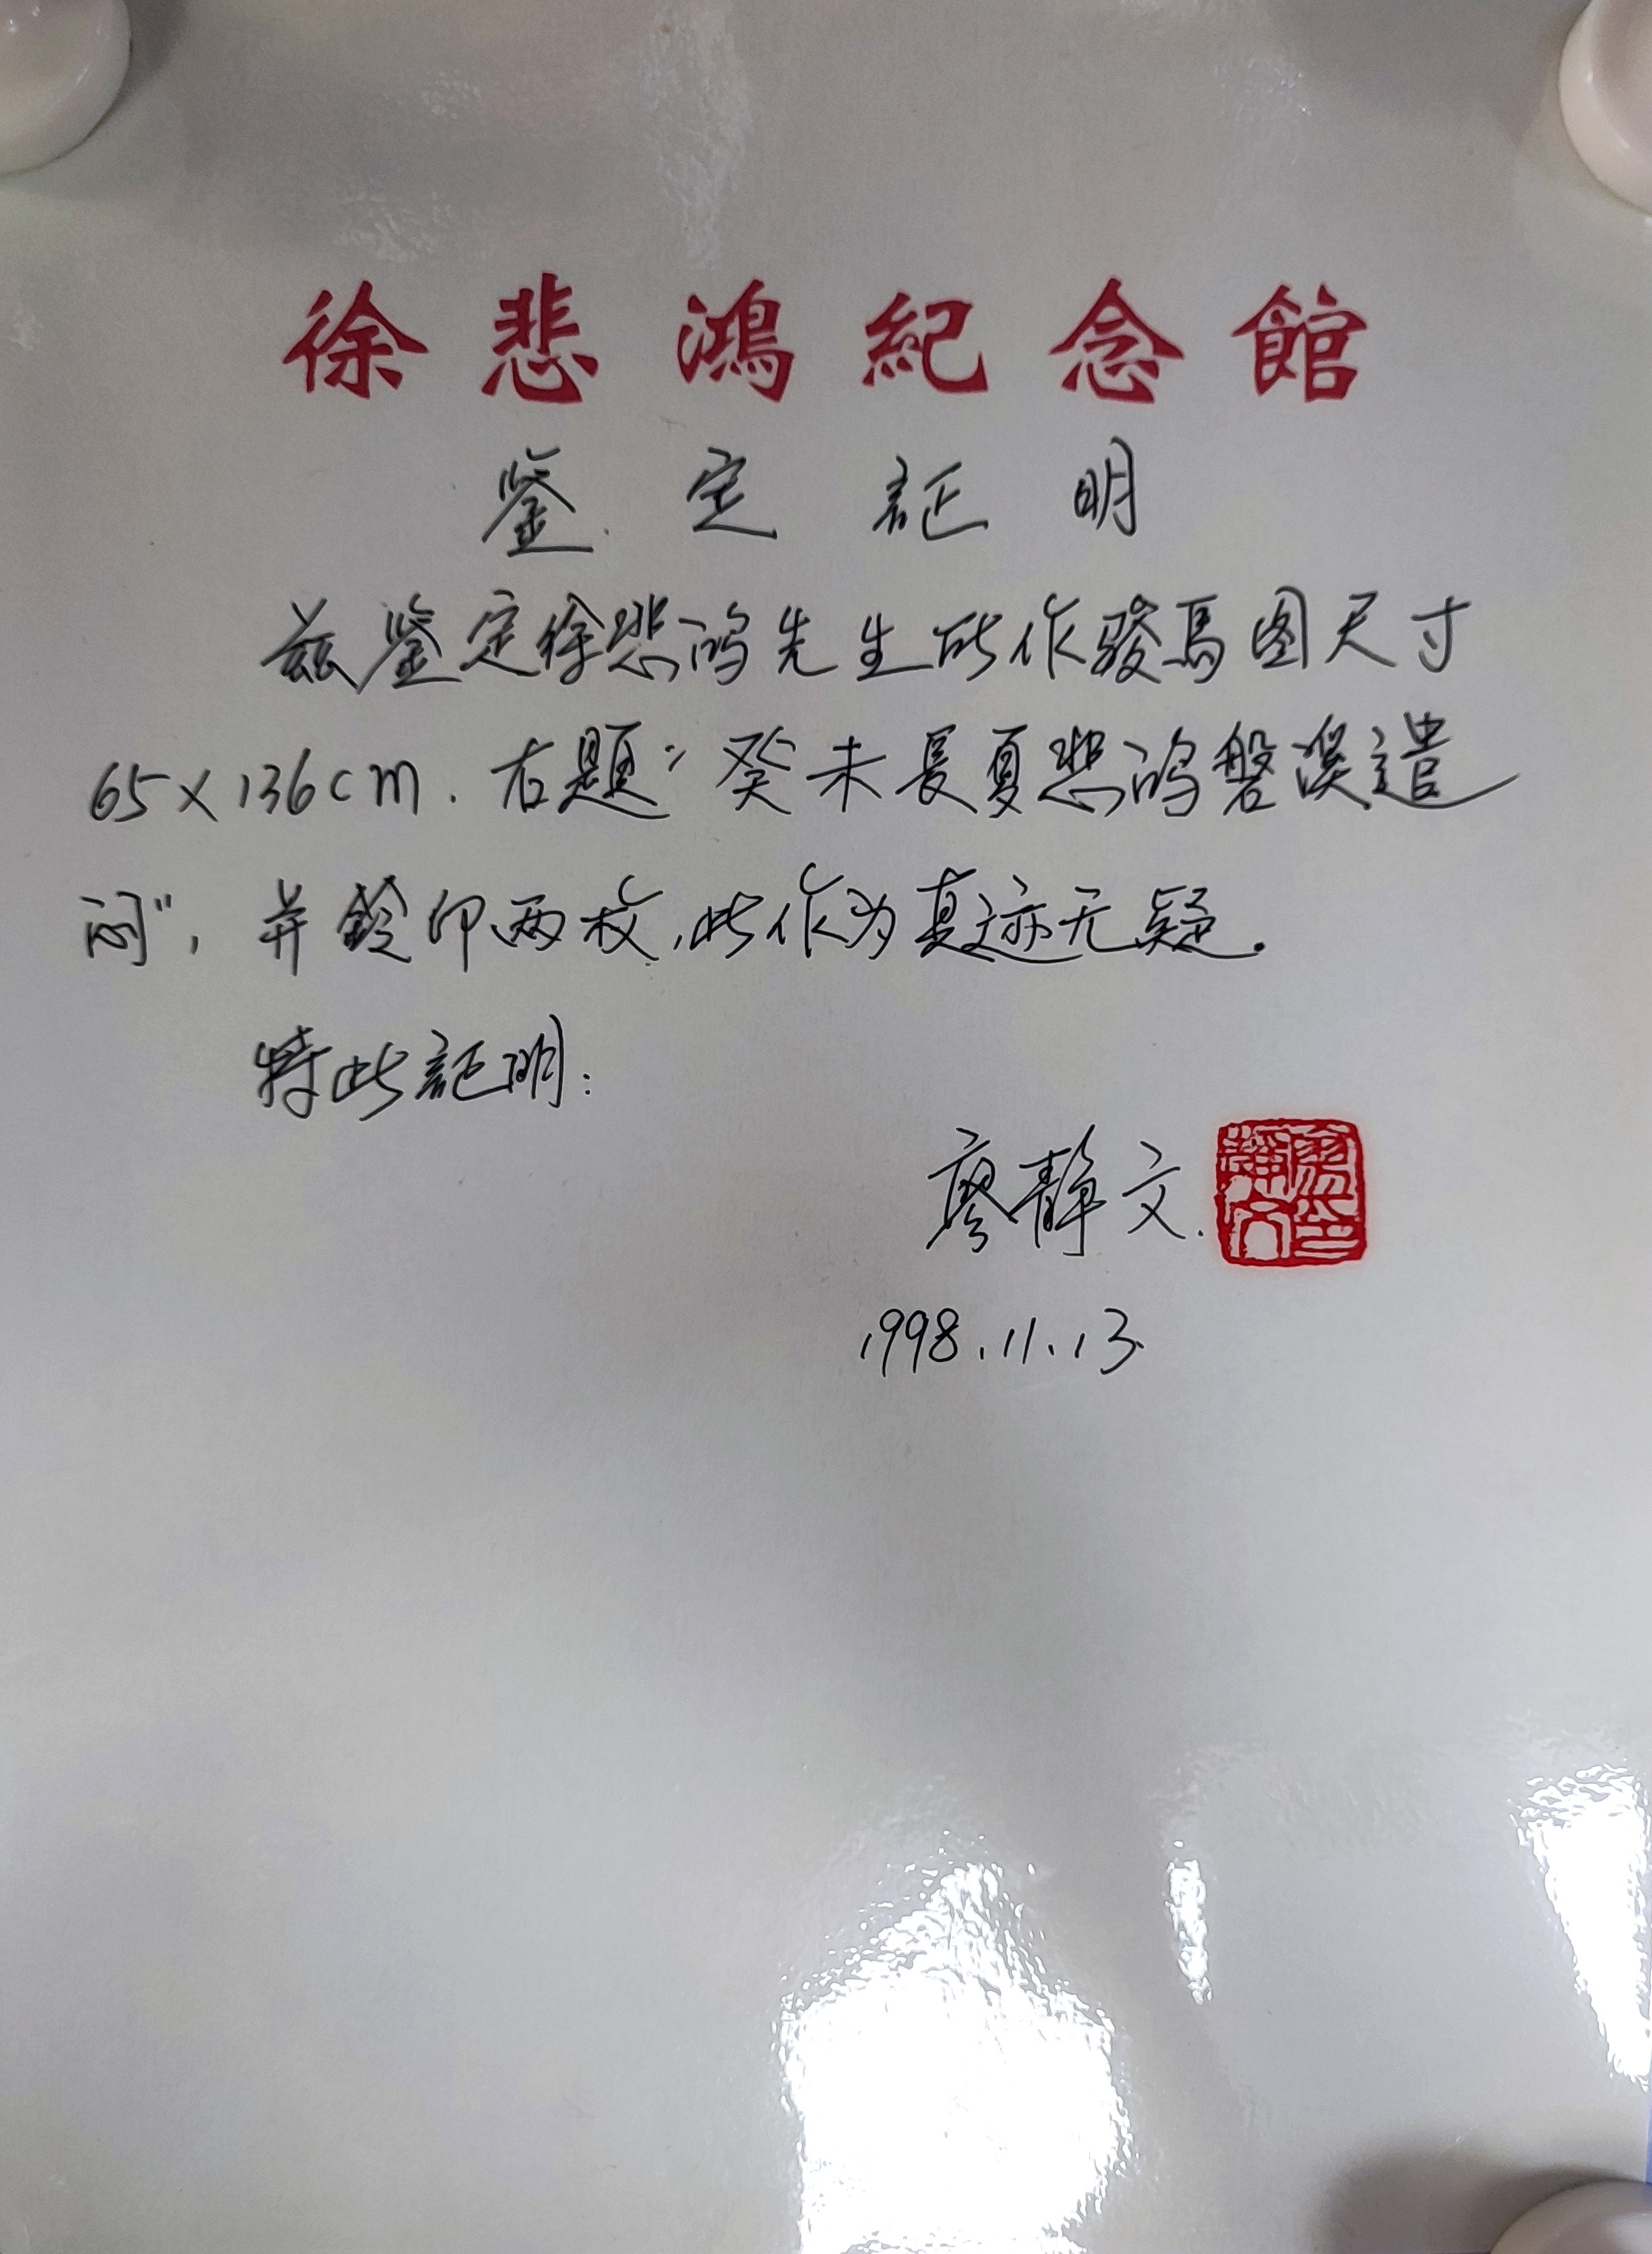 徐悲鴻紀念館
鉴定証明
兹鉴定徐悲鸿先生所作骏馬图尺寸
65×136cm. 右题“癸未長夏悲鸿磐溪遣
闷”, 并鈐印两枚,此作为真迹无疑.
特此証明:
廖静文.
廖静文印
1998.11.13.